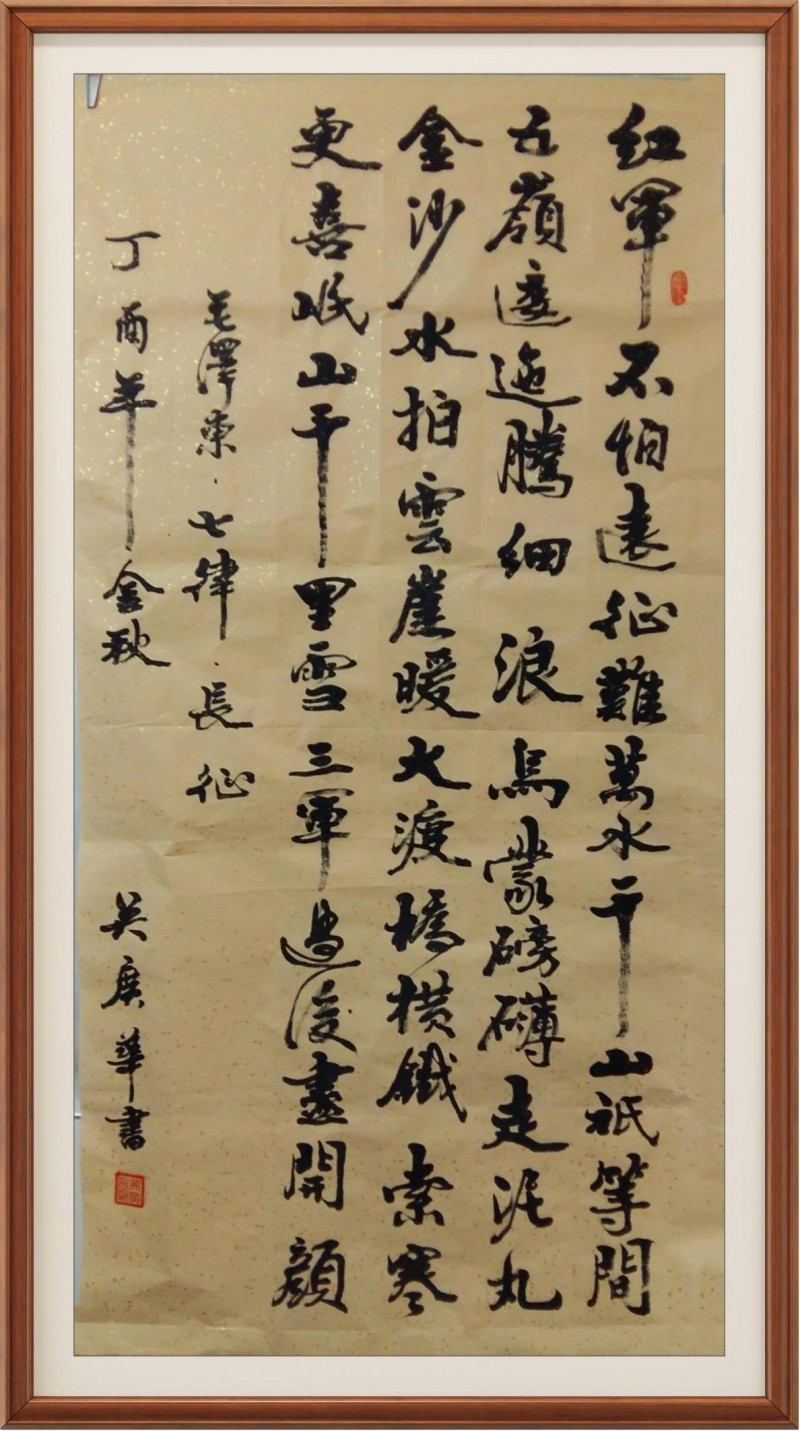 紅軍不怕遠征難萬水千山祇等閒
五嶺逶迤騰細浪烏蒙磅礴走泥丸
金沙水拍雲崖暖大渡橋橫鐵索寒
更喜岷山千里雪三軍過後盡開顏
毛澤東·七律·長征
丁酉年金秋
吴廣華書